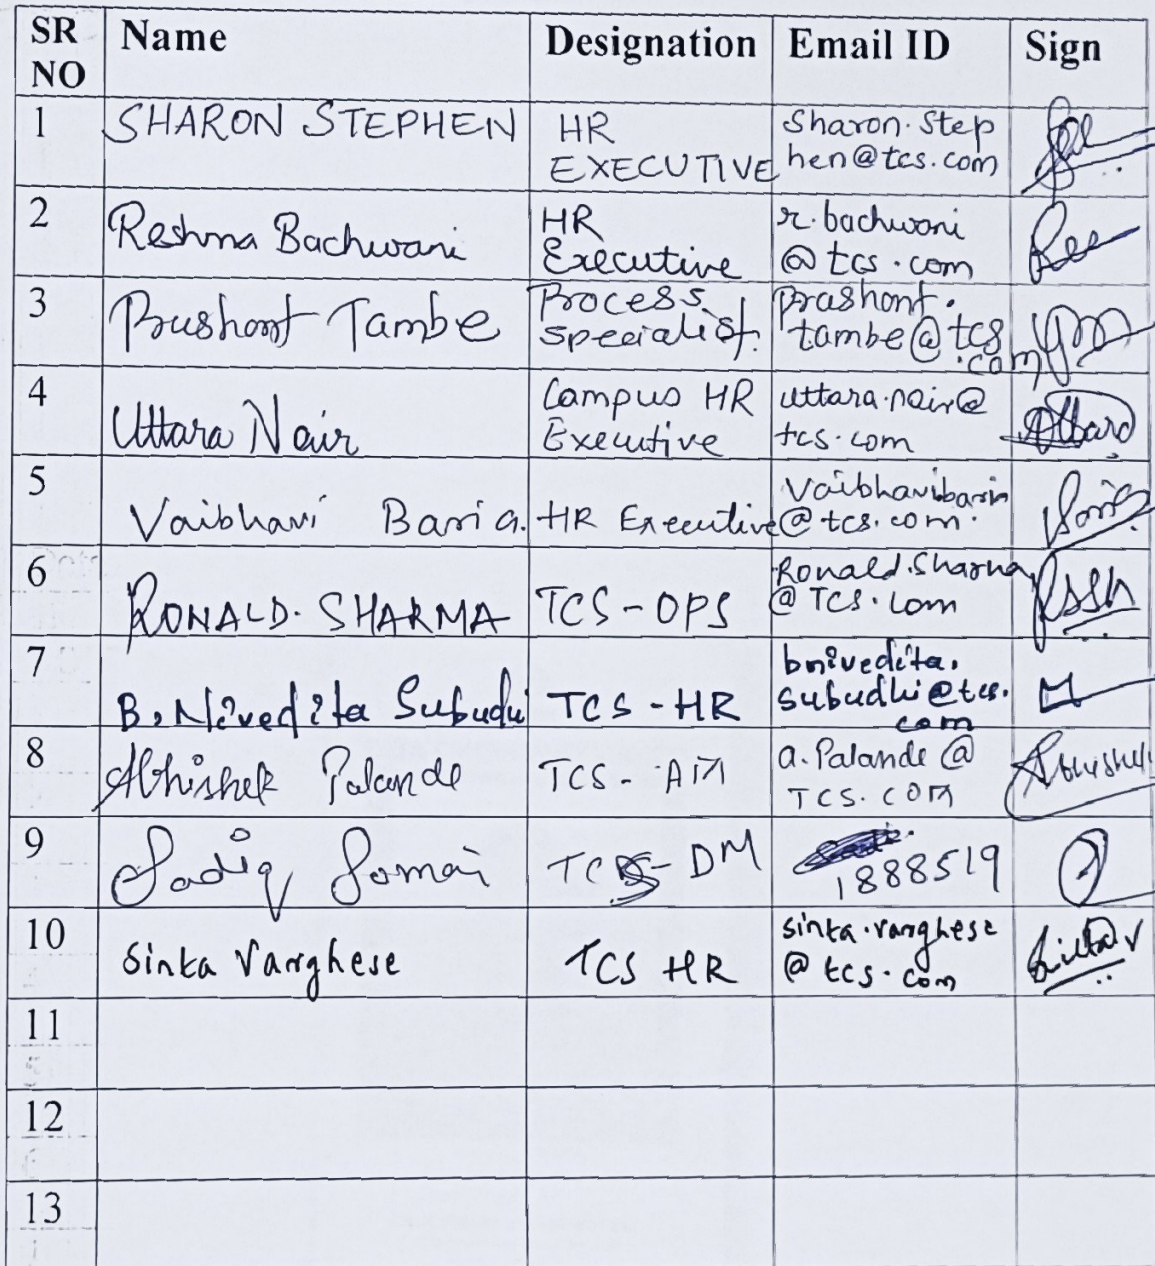 SR NO Name Designation Email ID Sign
1 SHARON STEPHEN HR EXECUTIVE Sharon.Stephen@tcs.com
2 Reshma Bachwani HR Executive r.bachwani@tcs.com
3 Prashant Tambe Process specialist. Prashant.tambe@tcs.com
4 Uttara Nair Campus HR Executive uttara.nair@tcs.com
5 Vaibhavi Baria. HR Executive Vaibhavibaria@tcs.com.
6 RONALD. SHARMA TCS-OPS Ronald.Sharma@TCS.com
7 B. Nivedita Subudhi TCS-HR bnivedita.subudhi@tcs.com
8 Abhishek Palande TCS- a.Palande@TCS.COM Abhishek
9 Sadiq Somai TCS-DM 1888519
10 Sinta Varghese TCS HR sinta.varghese@tcs.com
11
12
13